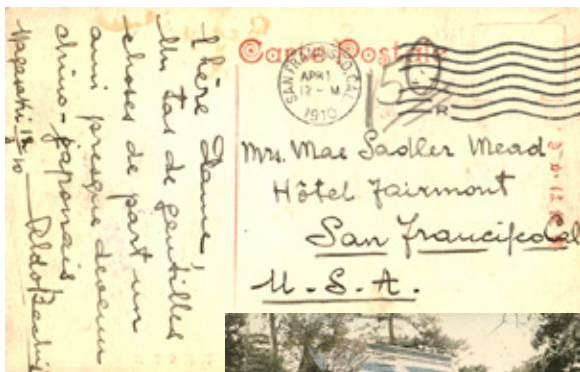 Carte Postale
SAN FRANCISCO, CAL.
APR 1
12 - M
1910
Mrs. Mae Sadler Mead
Hôtel Fairmont
San Francisco Cal
U. S. A.
Chère Dame,
Un tas de gentilles
choses de part un
ami presque devenu
chino-japonais
Nagasaki
Aldo